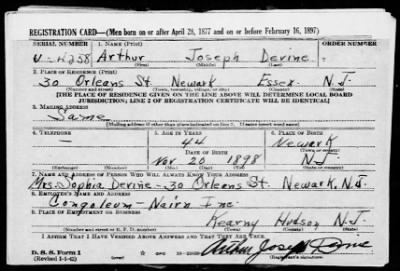 REGISTRATION CARD—(Men born on or after April 28, 1877 and on or before February 16, 1897)
SERIAL NUMBER 1. NAME (Print) ORDER NUMBER
U-4258 Arthur Joseph Devine
(First) (Middle) (Last)
2. PLACE OF RESIDENCE (Print)
30 Orleans St. Newark Essex N.J.
(Number and street) (Town, township, village, or city) (County) (State)
[THE PLACE OF RESIDENCE GIVEN ON THE LINE ABOVE WILL DETERMINE LOCAL BOARD
JURISDICTION; LINE 2 OF REGISTRATION CERTIFICATE WILL BE IDENTICAL]
3. MAILING ADDRESS
Same
[Mailing address if other than place indicated on line 2. If same insert word same]
4. TELEPHONE 5. AGE IN YEARS 6. PLACE OF BIRTH
— 44 Newark
DATE OF BIRTH (Town or county)
Nov 20 1898 N.J.
(Mo.) (Day) (Yr.) (State or country)
7. NAME AND ADDRESS OF PERSON WHO WILL ALWAYS KNOW YOUR ADDRESS
Mrs. Sophia Devine - 30 Orleans St. Newark, N.J.
8. EMPLOYER'S NAME AND ADDRESS
Congoleum - Nairn Inc.
9. PLACE OF EMPLOYMENT OR BUSINESS
Kearny Hudson N.J.
(Number and street or R. F. D. number) (Town) (County) (State)
I AFFIRM THAT I HAVE VERIFIED ABOVE ANSWERS AND THAT THEY ARE TRUE.
D. S. S. Form 1
(Revised 1-1-42)
Arthur Joseph Devine